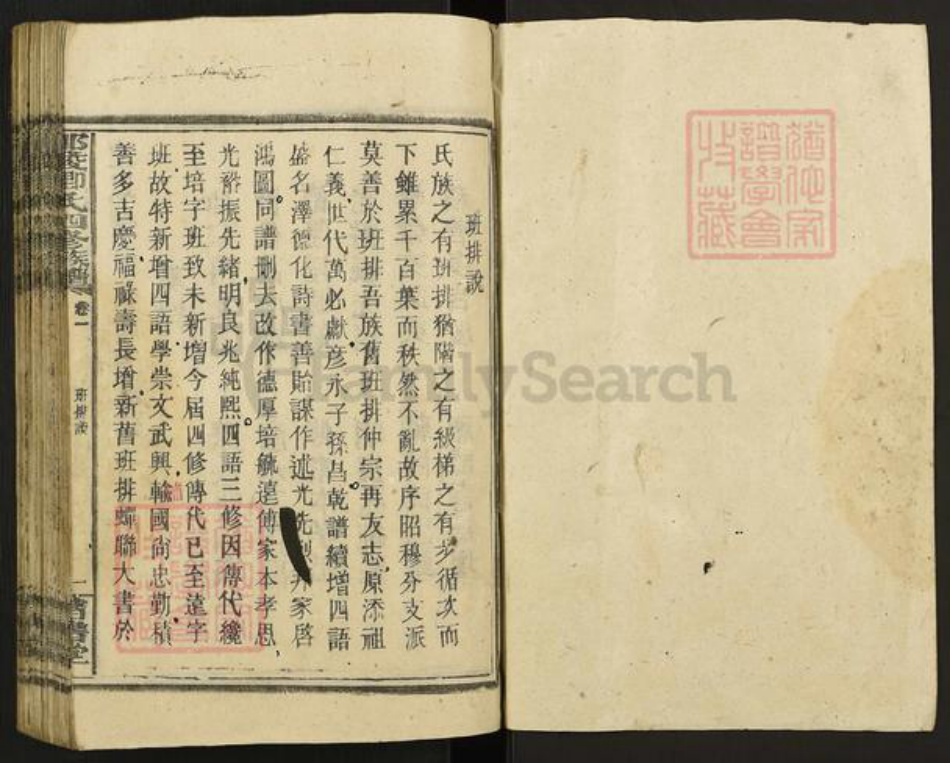 班排說
氏族之有班排猶階之有級梯之有步循次而
下雖累千百葉而秩然不亂故序昭穆分支派
莫善於班排吾族舊班排仲宗再友志原添祖
仁義世代萬必獻彥永子孫昌乾譜續增四語
盛名澤德化詩書善貽謀作述光先烈邦家啓
鴻圖同譜刪去改作德厚培毓遠傳家本孝思
光裕振先緒明良兆純熙四語三修因傳代纔
至培字班致未新增今屆四修傳代已至遠字
班故特新增四語學崇文武興輸國尚忠勤積
善多吉慶福祿壽長增新舊班排蟬聯大書於
氏四修族譜
卷一
班排說
一
猶他家
譜學會
收藏
FamilySearch